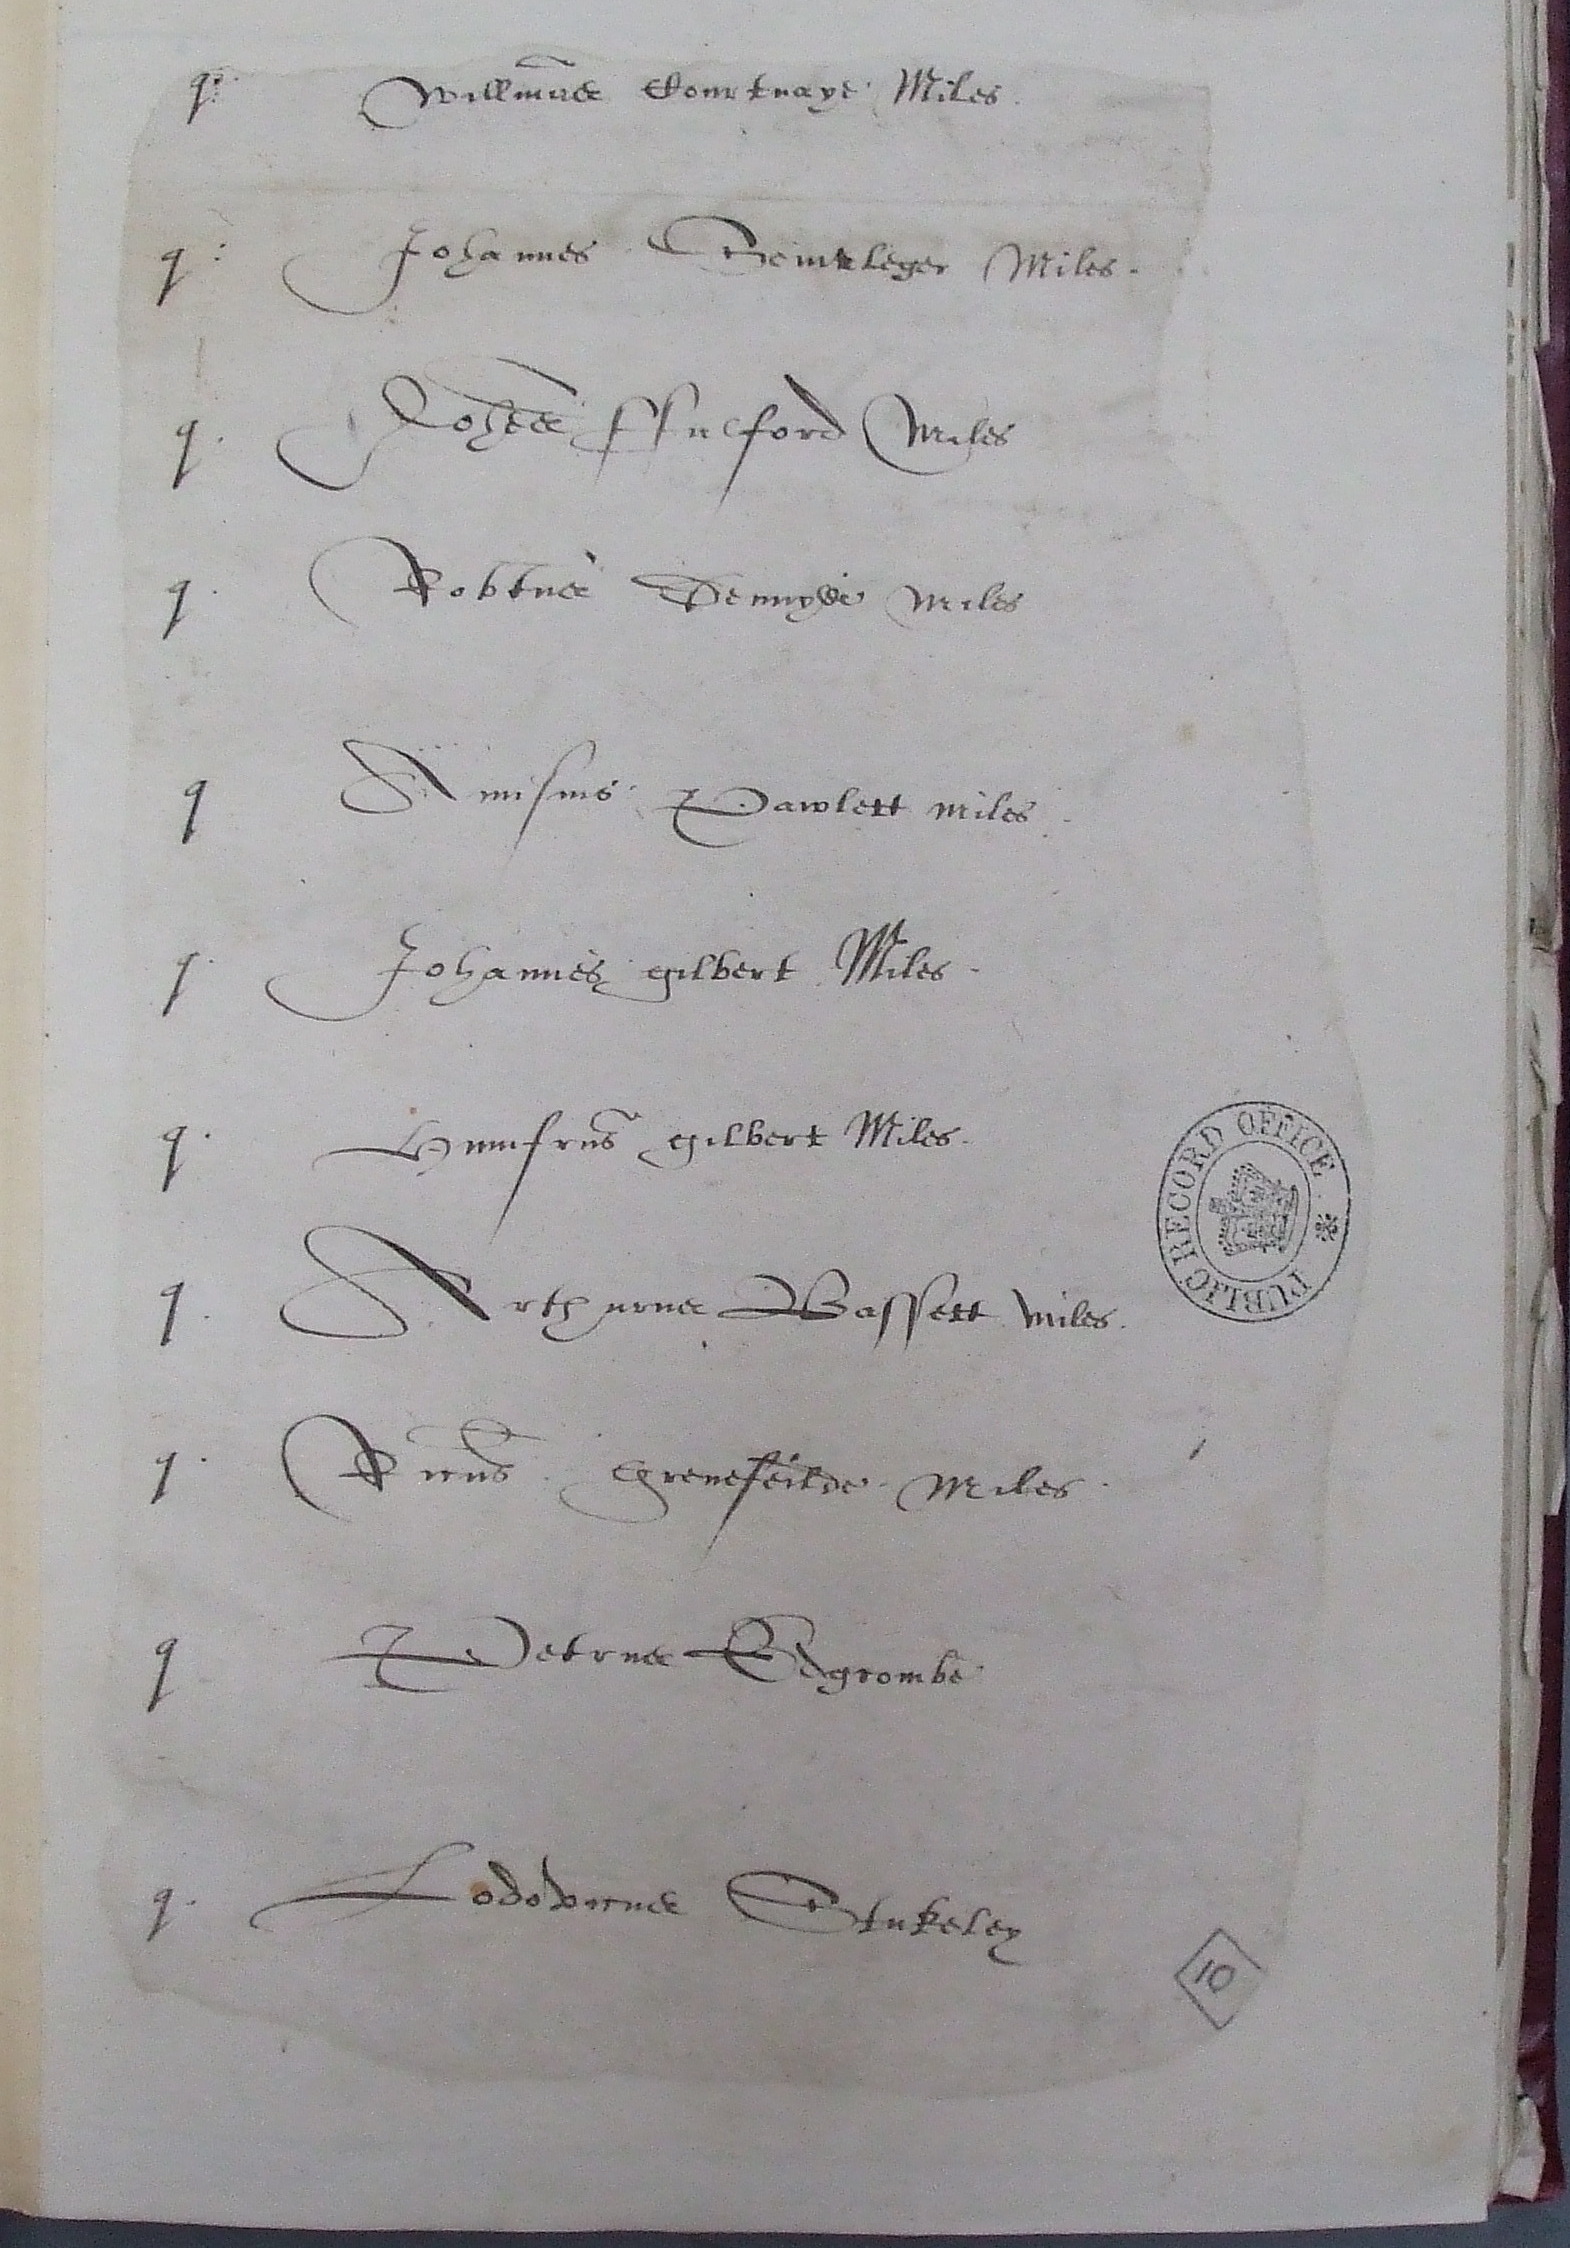 q: Willmus Courtnaye Miles
q: Johannes Sentleger Miles
q. Johes ffulford Miles
q. Robtus Dennyse Miles
q Amisius Pawlett miles
q. Johannes gilbert Miles
q. Humfrus gilbert Miles
q. Arthurus Bassett miles
q. Ricus Grenefeilde Miles
q Petrus Edgcombe
q. Lodovicus Stukeley
PUBLIC RECORD OFFICE
10